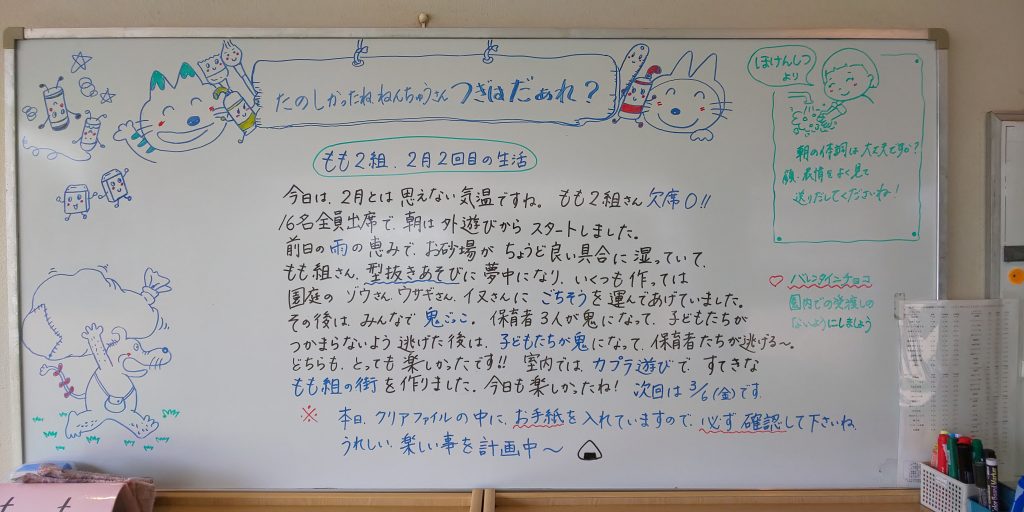 たのしかったね ねんちゅうさん つぎはだぁれ？
ほけんしつ
より
朝の体調は大丈夫ですか？
顔、表情をよく見て
送りだしてくださいね！
もも2組、2月2回目の生活
今日は、2月とは思えない気温ですね。もも2組さん欠席0!!
16名全員出席で、朝は外遊びからスタートしました。
前日の雨の恵みで、お砂場がちょうど良い具合に湿っていて、
もも組さん、型抜きあそびに夢中になり、いくつも作っては
園庭のゾウさん、ウサギさん、イヌさんにごちそうを運んであげていました。
その後は、みんなで鬼ごっこ。保育者3人が鬼になって、子どもたちが
つかまらないよう逃げた後は、子どもたちが鬼になって、保育者たちが逃げる〜。
どちらも、とっても楽しかったです!! 室内では、カプラ遊びで、すてきな
もも組の街を作りました。今日も楽しかったね！ 次回は3/6(金)です。
※ 本日、クリアファイルの中に、お手紙を入れていますので、必ず確認して下さいね。
うれしい、楽しい事を計画中〜
♡ バレンタインチョコ
園内での受渡しの
ないようにしましょう